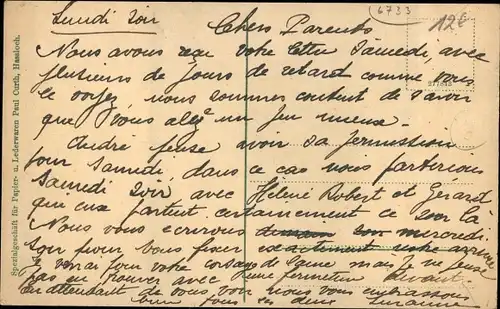 Lundi Soir
6733
12€
Chers Parents
Nous avons reçu votre lettre Samedi, avec
plusieurs de jours de retard comme vous
le voyez, nous sommes content de savoir
que vous allez un peu mieux.
André pense avoir sa permission
pour Samedi, dans ce cas nous partirions
Samedi soir avec Hélène Robert et Gérard
que eux partent certainement ce soir là
Nous vous écrirons mercredi
soir pour vous fixer exactement votre arrivée
pour votre corsage de laine mais je ne pense
pas en trouver avec une fermeture devant.
En attendant de vous voir nous vous embrassons
bien tous les deux Suzanne
Spezialgeschäft für Papier- u. Lederwaren Paul Curth, Hassloch.